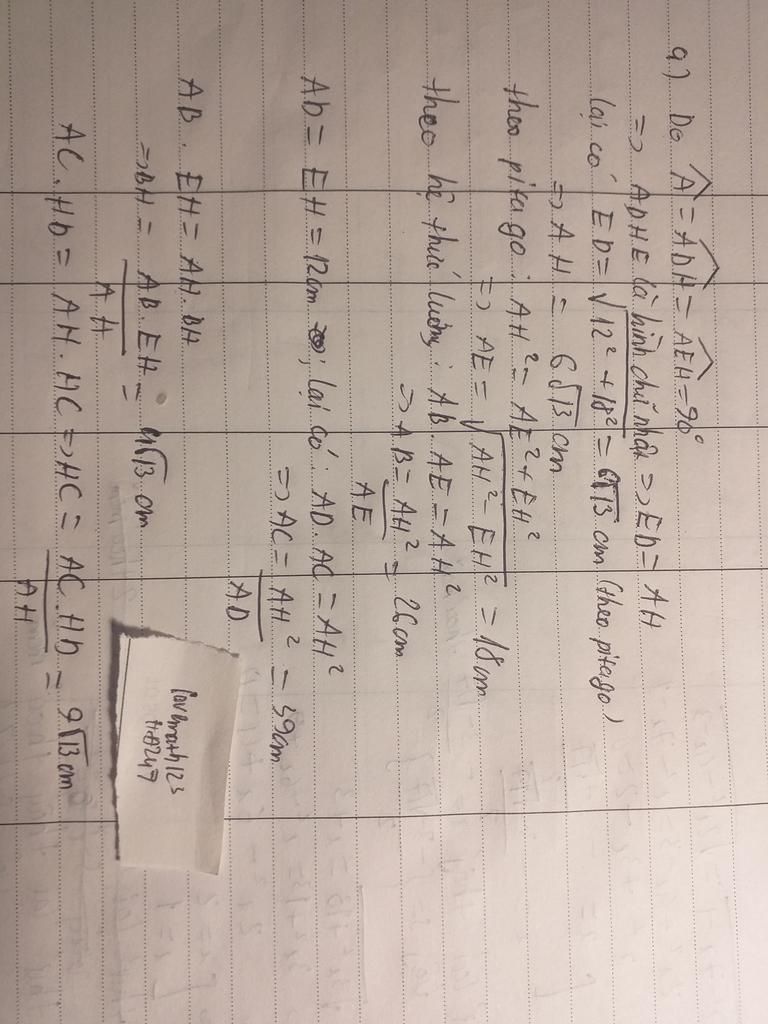 a) Do Â = ADH^ = AEH^ = 90°
=> ADHE là hình chữ nhật => ED = AH
lại có ED = √12² + 18² = 6√13 cm (theo pitago)
=> AH = 6√13 cm
theo pitago: AH² = AE² + EH²
=> AE = √AH² - EH² = 18cm
theo hệ thức lượng: AB. AE = AH²
=> AB = AH²/AE = 26cm
AD = EH = 12cm; lại có: AD. AC = AH²
=> AC = AH²/AD = 39cm
AB. EH = AH. BH
=> BH = AB. EH/AH = 4√13 cm
AC. HD = AH. HC => HC = AC. HD/AH = 9√13 cm
lovemath123
HA247